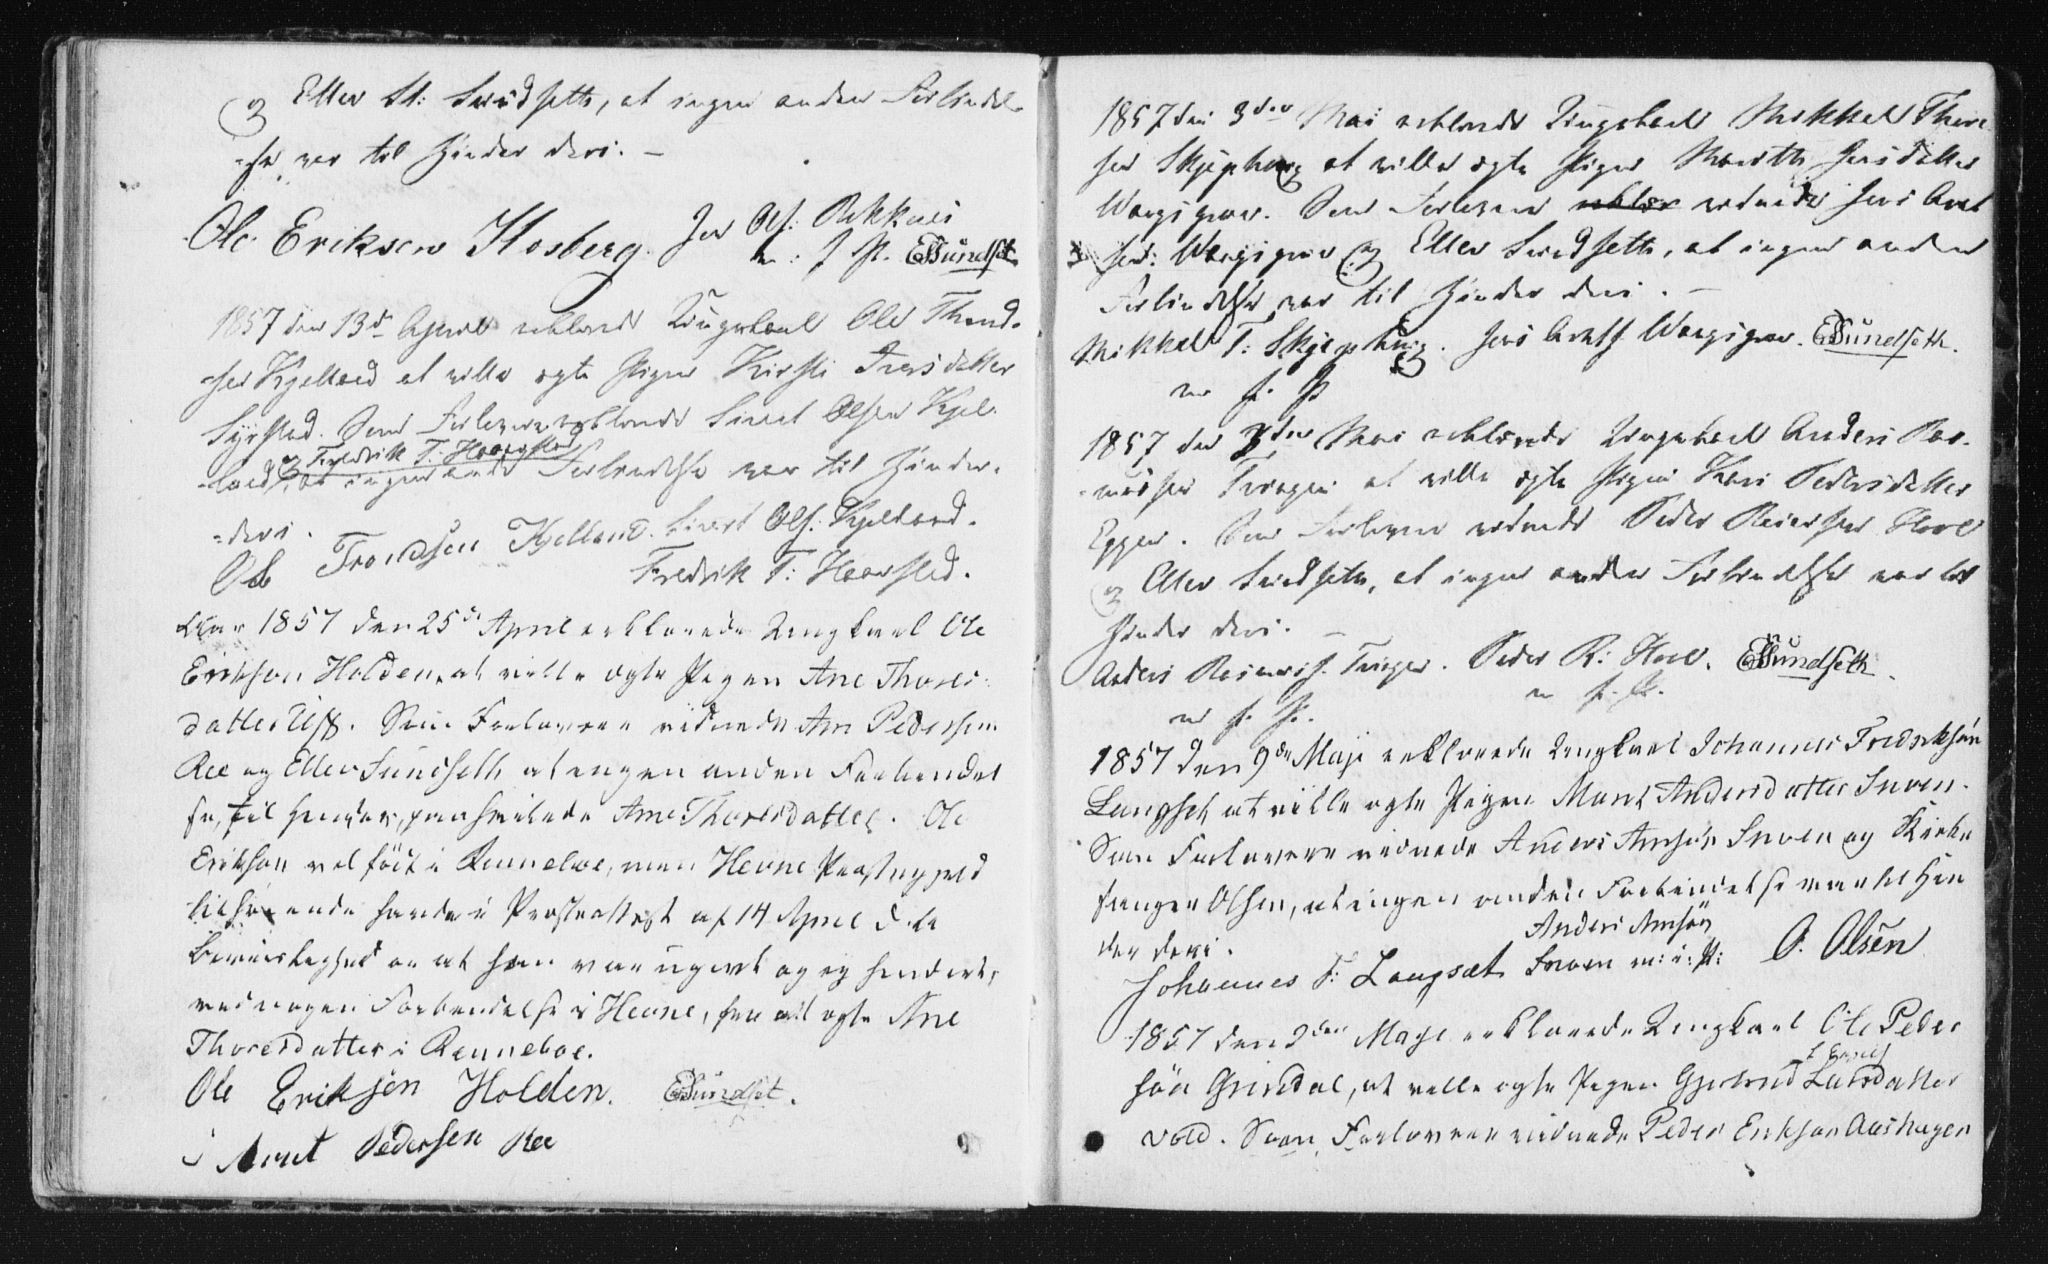 og Eller St: Sundseth, at ingen anden Forbindel-
-se var til Hinder deri. –
Ole Eriksen Hosberg. Jon Ols: Rekkaas
m: f P. ESundset
1857 den 13de April erklærede Ungekarl Ole Thrond-
-sen Kjelland at ville ægte Pigen Kirsti Iversdatter
Syrstad. Som Forlovere erklærede Sivert Olsen Kjel-
Fredrik T: Haarstad
-land og, at ingen anden Forbindelse var til Hinder
-deri.
Ole Trondsen Kjelland. Sivert Ols: Kjelland.
Fredrik T: Haarstad.
Aar 1857 den 25de April erklærede Ungkarl Ole
Erikson Holden, at ville ægte Pigen Ane Thores-
datter Uf. Som Forlovere vidnede Arn Pedersen
Ree og Eller Sundseth at engen anden Forbendel
se, til Hender, paahvilede Ane Thoresdatter. Ole
Erikson vel født i Renneboe, men Hevne Prestegjeld
tilhørende havde i Prestattest af 14 April d. a.
beviisleghed om at han var ugivt og ej hendret,
ved nogen Forbendelse i Hevne, fra at ægte Ane
Thoresdatter i Renneboe.
Ole Eriksen Holden. ESundset.
Arnt Pedersen Ree
1857 den 3den Mai erklærede Ungekarl Mikkel Thore
sen Skjephaug at ville ægte Pigen Marith Jensdatter
Wangsgrav. Som Forlovere erklær vidnede Jens Arnt
sen: Wangsgrav og Eller Sundseth, at ingen anden
Forbindelse var til Hinder deri. –
Mikkel T: Skjephaug. Jens Arntss Wangsgrav. ESundseth.
m f. P
1857 den 3den Mai erklærede Ungekarl Anders Ras-
-mussen at ville ægte Pigen Kari Pedersdatter
Eggen. Som Forlovere vidnede Peder Reiersen Hoel
og Eller Sundseth, at ingen anden Forbindelse var til
Hinder deri. –
Anders Rasmuss. Peder R: Hoel. ESundseth.
m f. P.
m f. P.
1857 den 9de Maji erklærede Ungkarl Johannes Fredriksøn
Langset at ville ægte Pigen Marit Andersdatter Snoen.
Som Forlovere vidnede Anders Arnsøn Snoen og Kirke
sanger Olsen, at ingen anden Forbindelse var til Hin
der deri.
Anders Arnsøn
Johannes F: Langsæt Snoen m: i: P: O. Olsen
1857 den 9den Maje erklærede Ungkarl Ole Peder
søn Grindal, at ville ægte Pigen Gjertrud Larsdatter
vold. Som Forlovere vidnede Peder Erikson Aashagen